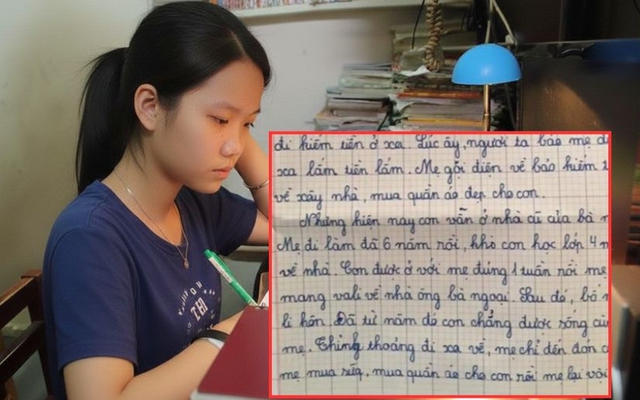 đi kiếm tiền ở xa. Lúc ấy, người ta bảo mẹ đ
xa lắm tiền lắm. Mẹ gọi điện về bảo kiếm t
về xây nhà, mua quần áo đẹp cho con.
Nhưng hiện nay con vẫn ở nhà cũ của bà n
Mẹ đi làm đã 6 năm rồi, khi con học lớp 4 m
về nhà. Con được ở với mẹ đúng 1 tuần rồi mẹ
mang vali về nhà ông bà ngoại. Sau đó, bố m
li hôn. Đã từ năm đó con chẳng được sống cùn
mẹ. Thỉnh thoảng đi xa về, mẹ chỉ đến đón c
mẹ mua sữa, mua quần áo cho con rồi mẹ lại vội